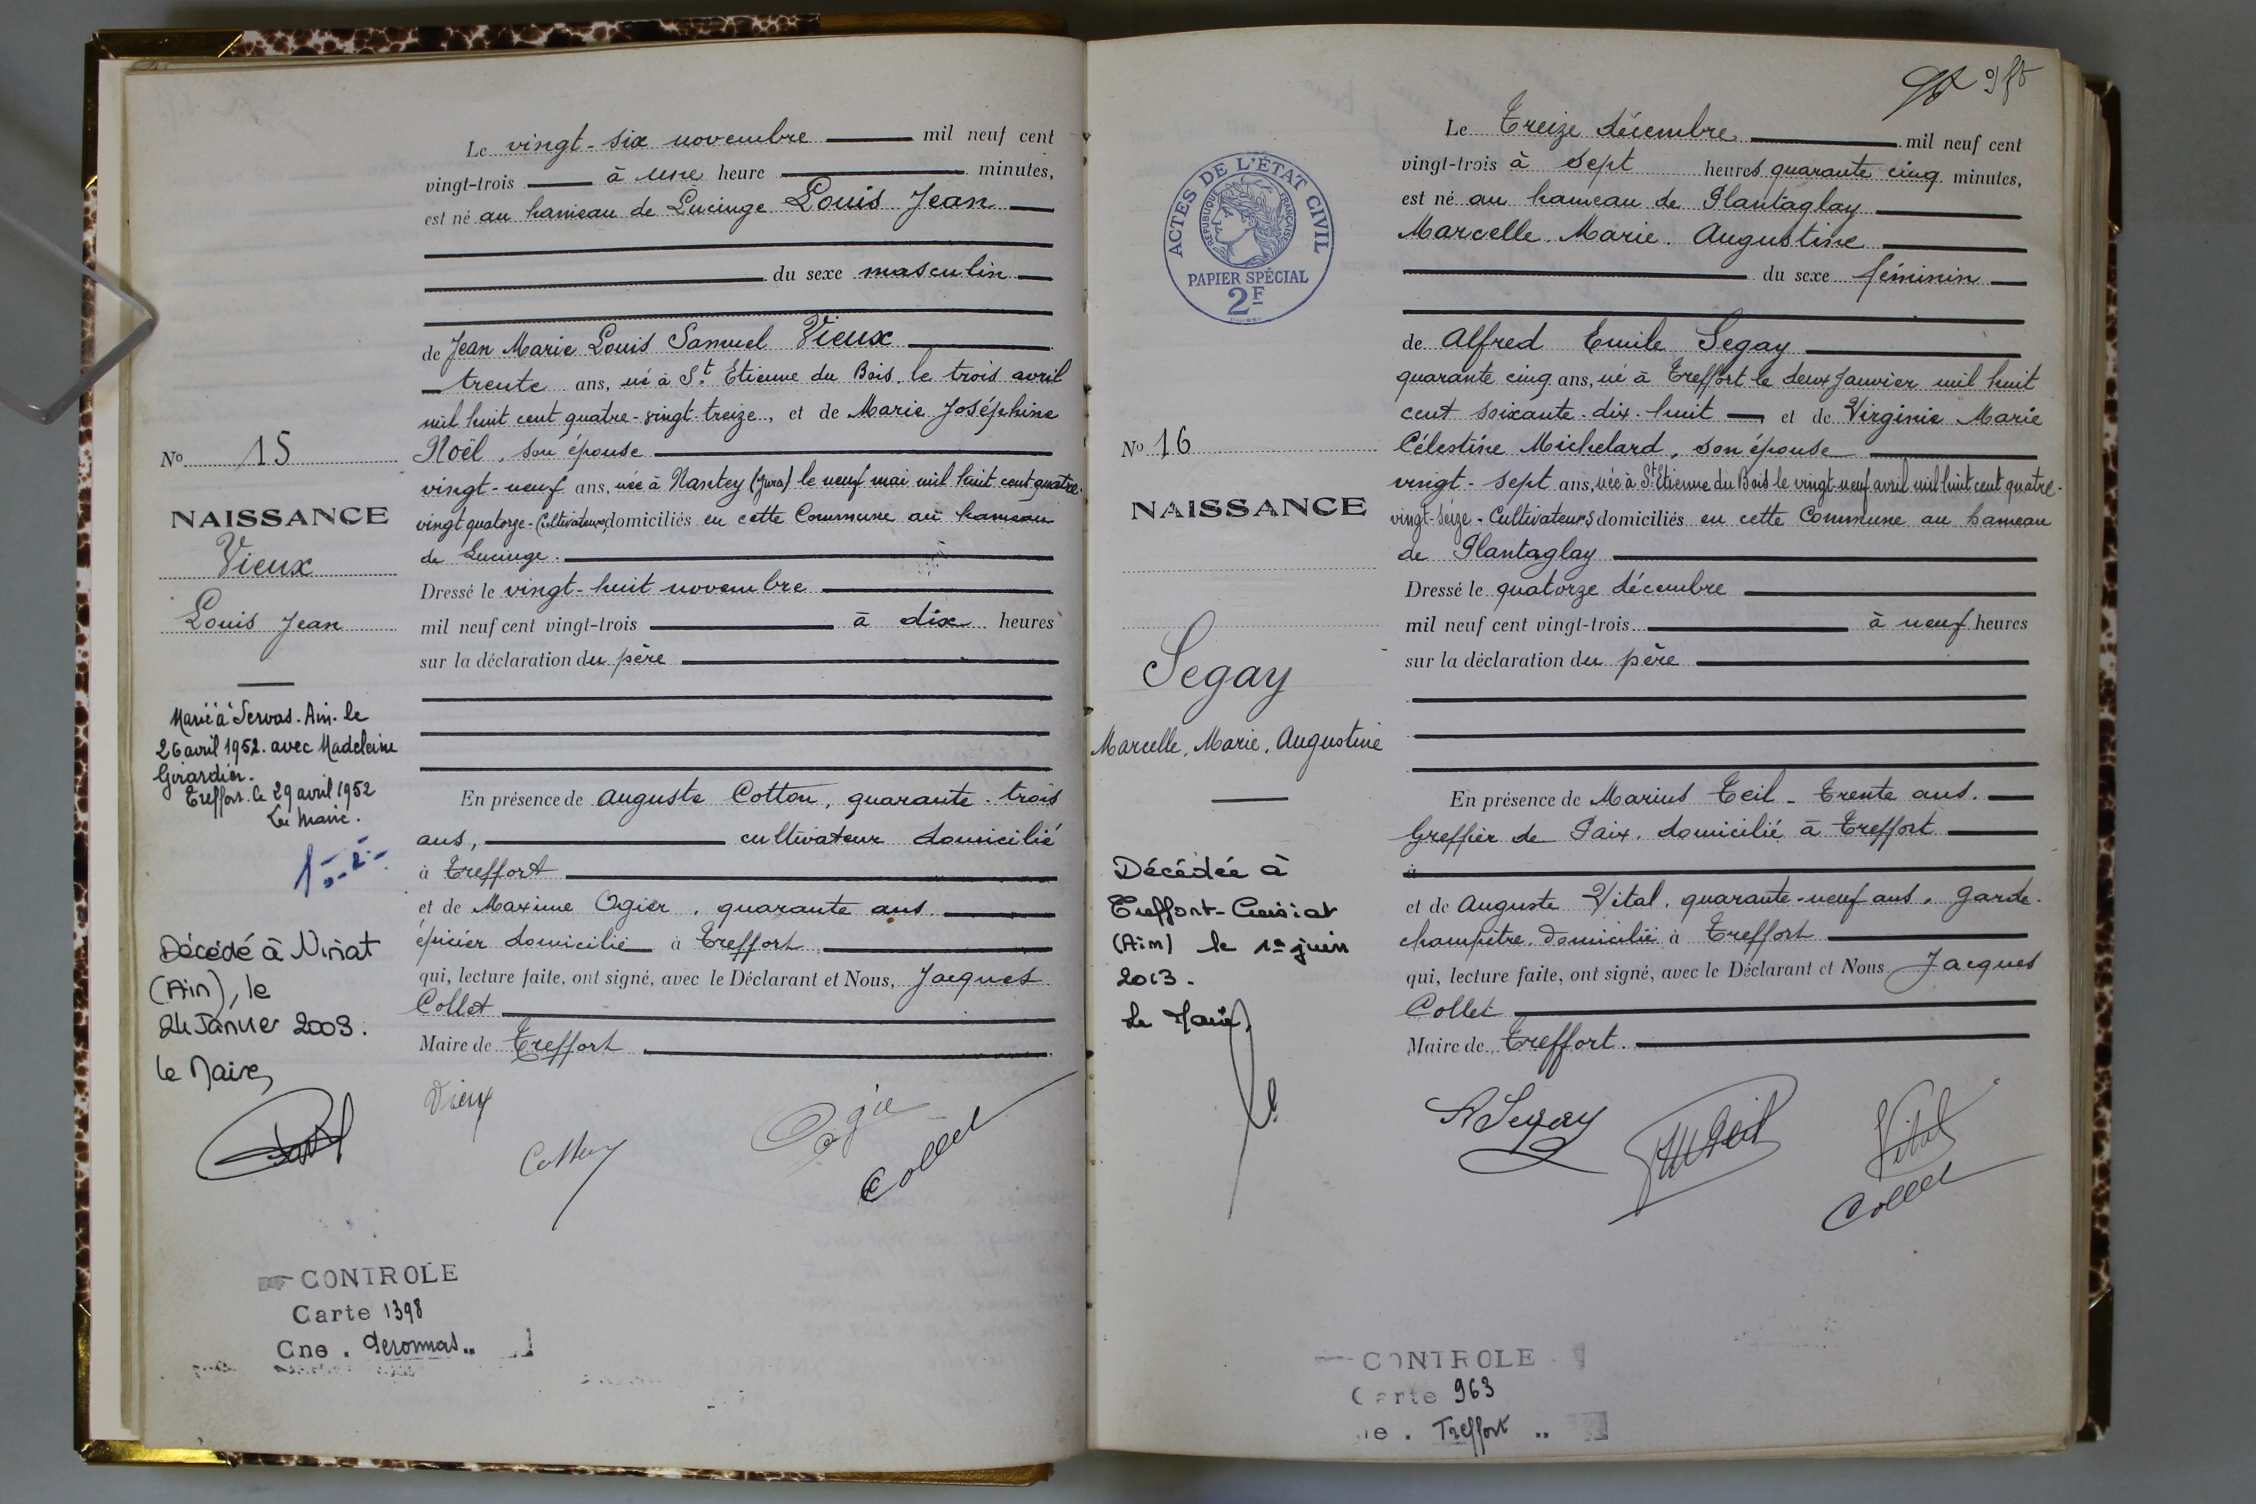 Le vingt-six novembre mil neuf cent
vingt-trois à une heure minutes,
est né au hameau de Lucinge Louis Jean
du sexe masculin
de Jean Marie Louis Samuel Vieux
trente ans, né à St Etienne du Bois le trois avril
mil huit cent quatre-vingt-treize, et de Marie Joséphine
Noël, son épouse
vingt-neuf ans, née à Nantey (Jura) le neuf mai mil huit cent quatre-
vingt quatorze - Cultivateurs, domiciliés en cette Commune au hameau
de Lucinge.
Dressé le vingt-huit novembre
mil neuf cent vingt-trois à dix heures
sur la déclaration du père
En présence de Auguste Cotton, quarante-trois
ans, cultivateur domicilié
à Treffort
et de Maxime Ogier, quarante ans
épicier domicilié à Treffort
qui, lecture faite, ont signé, avec le Déclarant et Nous, Jacques
Collet
Maire de Treffort
Vieux
Cotton
Ogier
Collet
No 15
NAISSANCE
Vieux
Louis Jean
Marié à Servas. Ain. le
26 avril 1952. avec Madeleine
Girardier.
Treffort. le 29 avril 1952
Le Maire.
Décédé à Viriat
(Ain), le
24 Janvier 2009.
le Maire,
CONTROLE
Carte 1398
Cne. Peronnas..
Le Treize décembre mil neuf cent
vingt-trois à sept heures quarante cinq minutes,
est né au hameau de Plantaglay
Marcelle Marie Augustine
du sexe féminin
de Alfred Emile Segay
quarante cinq ans, né à Treffort le deux Janvier mil huit
cent soixante-dix-huit et de Virginie Marie
Célestine Michelard, son épouse
vingt-sept ans, née à St Etienne du Bois le vingt-neuf avril mil huit cent quatre-
vingt-seize - Cultivateurs domiciliés en cette Commune au hameau
de Plantaglay
Dressé le quatorze décembre
mil neuf cent vingt-trois à neuf heures
sur la déclaration du père
En présence de Marius Teil - Trente ans.
Greffier de Paix. domicilié à Treffort
à
et de Auguste Vital, quarante-neuf ans, garde-
champêtre. domicilié à Treffort
qui, lecture faite, ont signé, avec le Déclarant et Nous Jacques
Collet
Maire de Treffort
A Segay
M Teil
Vital
Collet
ACTES DE L'ÉTAT CIVIL
RÉPUBLIQUE FRANÇAISE
PAPIER SPÉCIAL
2F
No 16
NAISSANCE
Segay
Marcelle, Marie, Augustine
Décédée à
Treffort-Cuisiat
(Ain) le 1er juin
2013.
Le Maire,
CONTROLE
Carte 963
ne. Treffort ..